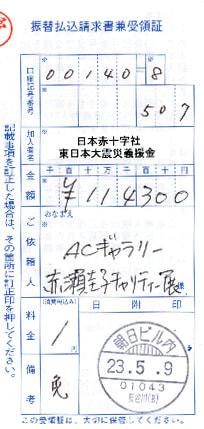 振替払込請求書兼受領証
口座記号番号
00140 8
507
加入者名
日本赤十字社
東日本大震災義援金
金額
千 百 十 万 千 百 十 円
¥114300
ご依頼人
おなまえ
ACギャラリー
赤瀬圭子チャリティー展
様
料金
(消費税込み)
円
日附印
備考
免
朝日ビル内
23.5.9
01043
長谷川(B)
記載事項を訂正した場合は、その箇所に訂正印を押してください。
この受領証は、大切に保管してください。